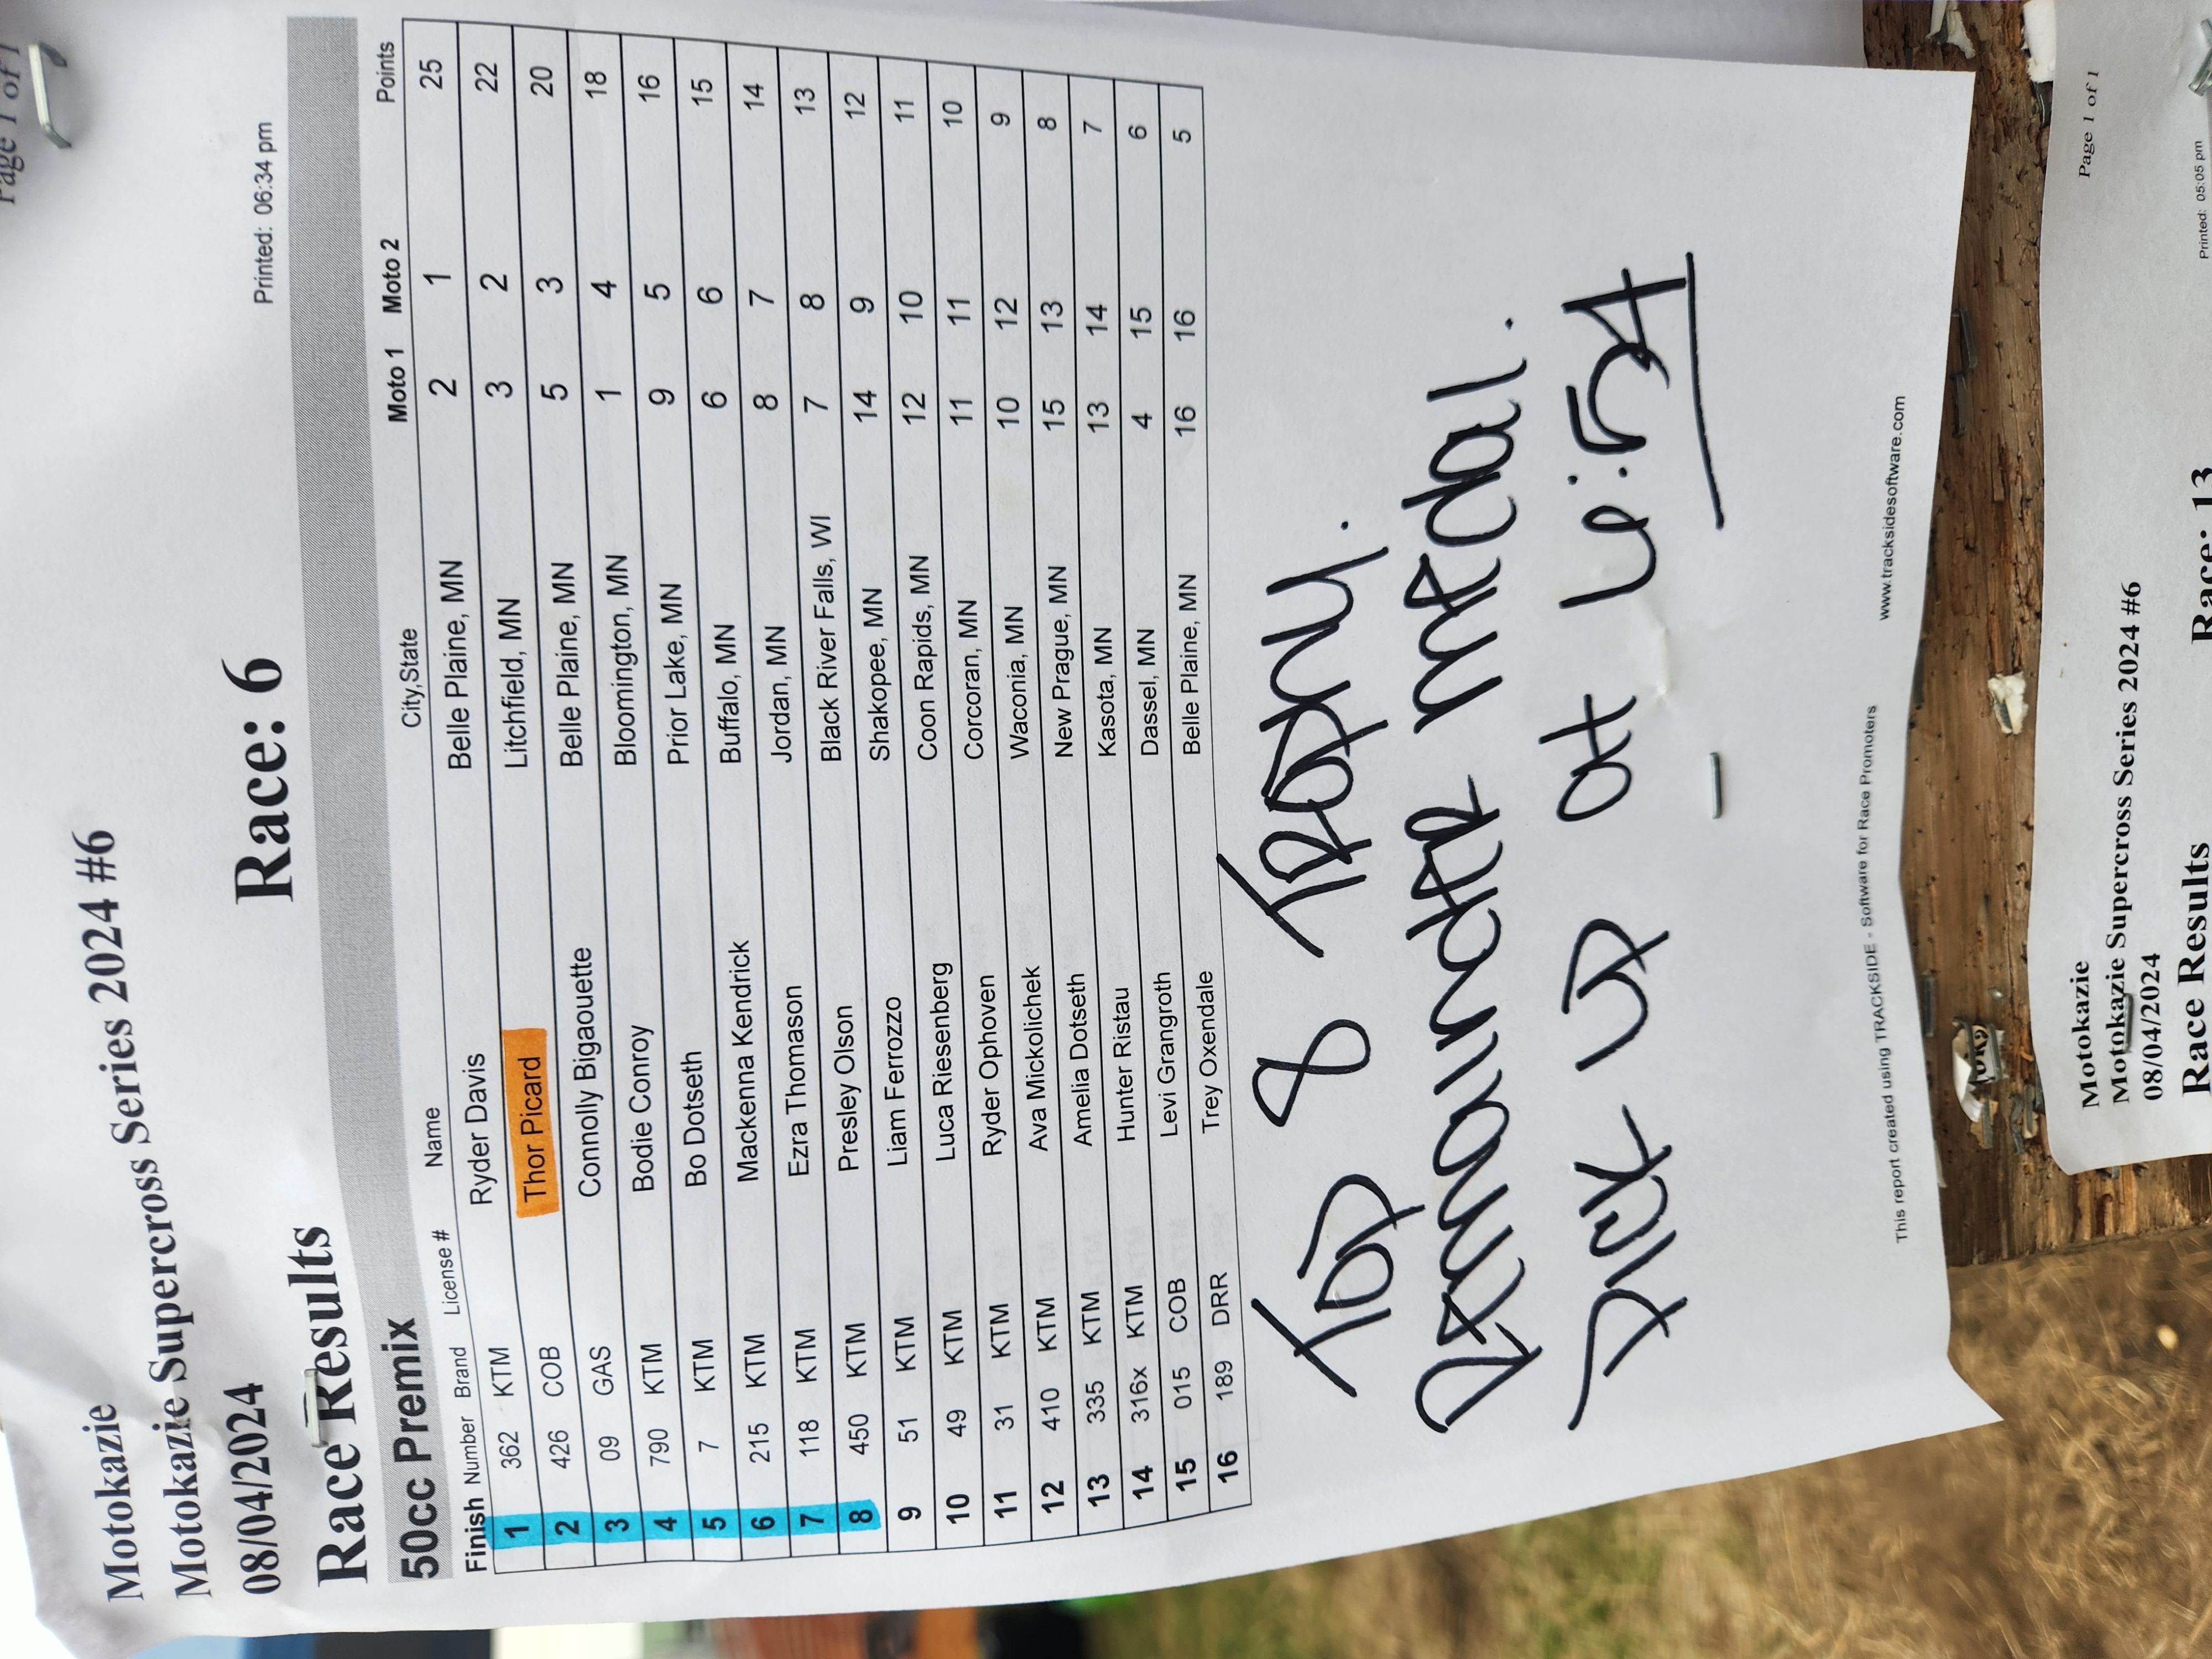 Page 1 of 1
Motokazie
Motokazie Supercross Series 2024 #6
08/04/2024
Printed: 06:34 pm
Race Results Race: 6
50cc Premix
Finish Number Brand License # Name City,State Moto 1 Moto 2 Points
1 362 KTM Ryder Davis Belle Plaine, MN 2 1 25
2 426 COB Thor Picard Litchfield, MN 3 2 22
3 09 GAS Connolly Bigaouette Belle Plaine, MN 5 3 20
4 790 KTM Bodie Conroy Bloomington, MN 1 4 18
5 7 KTM Bo Dotseth Prior Lake, MN 9 5 16
6 215 KTM Mackenna Kendrick Buffalo, MN 6 6 15
7 118 KTM Ezra Thomason Jordan, MN 8 7 14
8 450 KTM Presley Olson Black River Falls, WI 7 8 13
9 51 KTM Liam Ferrozzo Shakopee, MN 14 9 12
10 49 KTM Luca Riesenberg Coon Rapids, MN 12 10 11
11 31 KTM Ryder Ophoven Corcoran, MN 11 11 10
12 410 KTM Ava Mickolichek Waconia, MN 10 12 9
13 335 KTM Amelia Dotseth New Prague, MN 15 13 8
14 316x KTM Hunter Ristau Kasota, MN 13 14 7
15 015 COB Levi Grangroth Dassel, MN 4 15 6
16 189 DRR Trey Oxendale Belle Plaine, MN 16 16 5
TOP 8 TROPHY.
REMAINDER MEDAL.
PICK UP At 6:54
This report created using TRACKSIDE - Software for Race Promoters www.tracksidesoftware.com
Page 1 of 1
Motokazie
Motokazie Supercross Series 2024 #6
08/04/2024
Printed: 05:05 pm
Race Results Race: 13